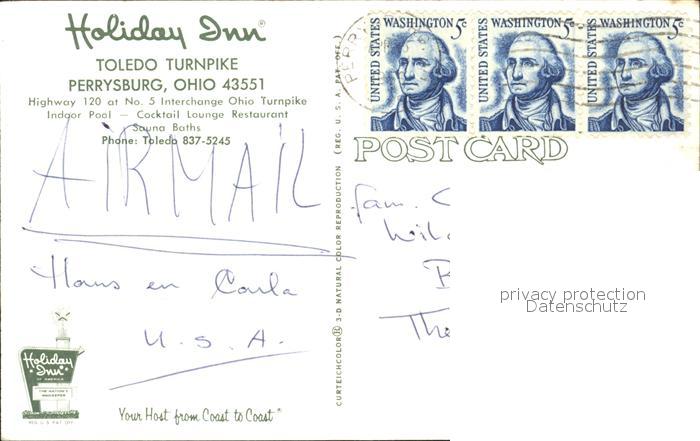 Holiday Inn®
TOLEDO TURNPIKE
PERRYSBURG, OHIO 43551
Highway 120 at No. 5 Interchange Ohio Turnpike
Indoor Pool — Cocktail Lounge Restaurant
Sauna Baths
Phone: Toledo 837-5245
AIRMAIL
Hans en Carla
U.S.A.
Holiday Inn
OF AMERICA
THE NATION'S
INNKEEPER
REG. U.S. PAT. OFF.
Your Host from Coast to Coast®
CURTEICHCOLOR® 3-D NATURAL COLOR REPRODUCTION (REG. U.S.A. PAT. OFF.)
UNITED STATES WASHINGTON 5c
UNITED STATES WASHINGTON 5c
UNITED STATES WASHINGTON 5c
PERR
POST CARD
fam.
The
privacy protection
Datenschutz